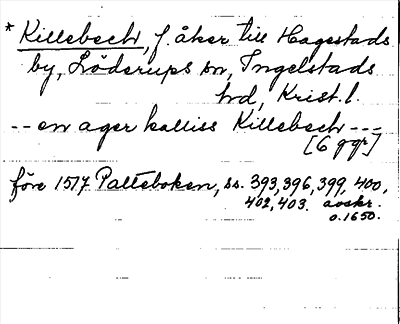 * Killebech, f. åker till Hagestads
by, Löderups sn, Ingelstads
hd, Krist. l.
-- en ager kalliss Killebech ---
[6 ggr]
före 1517 Palteboken, ss. 393, 396, 399, 400,
402, 403. avskr.
o. 1650.